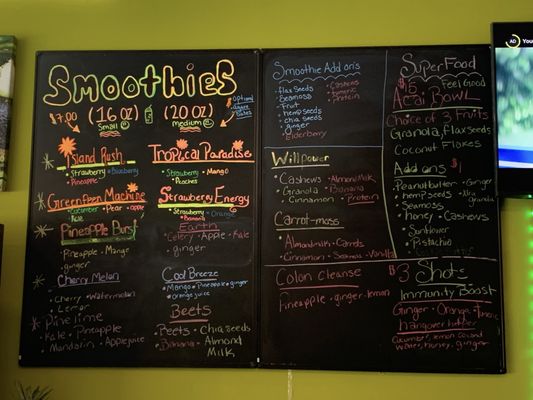 Smoothies
$7.00
(16 oz)
Small
(20 oz)
Medium
Optional
agave
Dates
Island Rush
Strawberry • Blueberry
• Pineapple
Green Teen Machine
Cucumber • Pear • apple
• Kale
Pineapple Burst
• Pineapple • Mango
• ginger
Cherry Melon
• Cherry • Watermelon
• Lemon
Pine Lime
• Kale • Pineapple
• Mandarin • Applejuice
Tropical Paradise
• Strawberry • Mango
• Peaches
Strawberry Energy
• Strawberry • Orange
• Banana
Earth
Celery • Apple • Kale
• ginger
Cool Breeze
• Mango • Pineapple • ginger
• orange juice
Beets
• Beets • Chia seeds
• Banana • Almond
Milk
Smoothie Add on's
• flax Seeds
• Seamoss
• Fruit
• hemp seeds
• chia seeds
• ginger
• Elderberry
• Cashews
• turmeric
• Protein
Will power
• Cashews • Almond Milk
• Granola • Banana
• Cinnamon • Protein
Carrot-moss
• Almond milk • Carrots
• Cinnamon • Seamoss • Vanilla
Colon Cleanse
Pineapple • ginger • lemon
SuperFood
$15 Feel Good
Acai Bowl
Choice of 3 Fruits
Granola, flax seeds
Coconut Flakes
Add ons $1
• Peanutbutter • Ginger
• hemp seeds • Xtra
• Seamoss granola
• honey • Cashews
• Sunflower
• Pistachio
$3 Shots
Immunity Boost
Ginger • Orange • Turmeric
Hangover helper
Cucumber, lemon, coconut
water, honey, ginger
AD
You